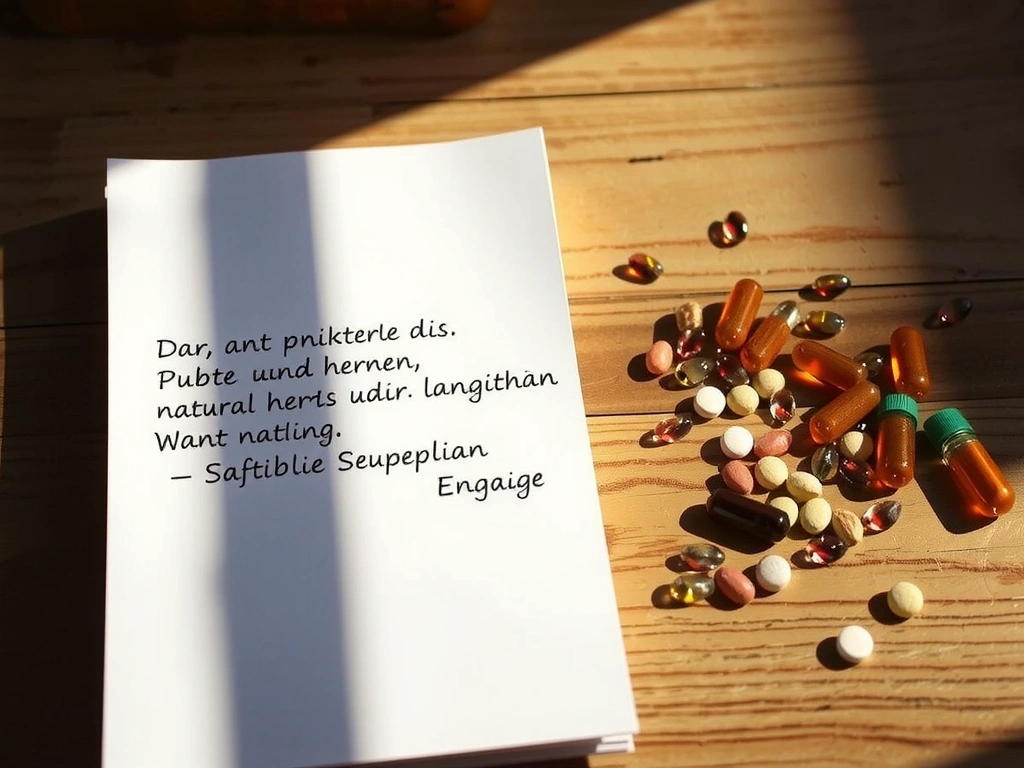 Dar, ant pnikterle dis.
Pubte uund hernen,
natural herts udir. langithàn
Want natling.
— Saftiblie Seupeplian
Engaige